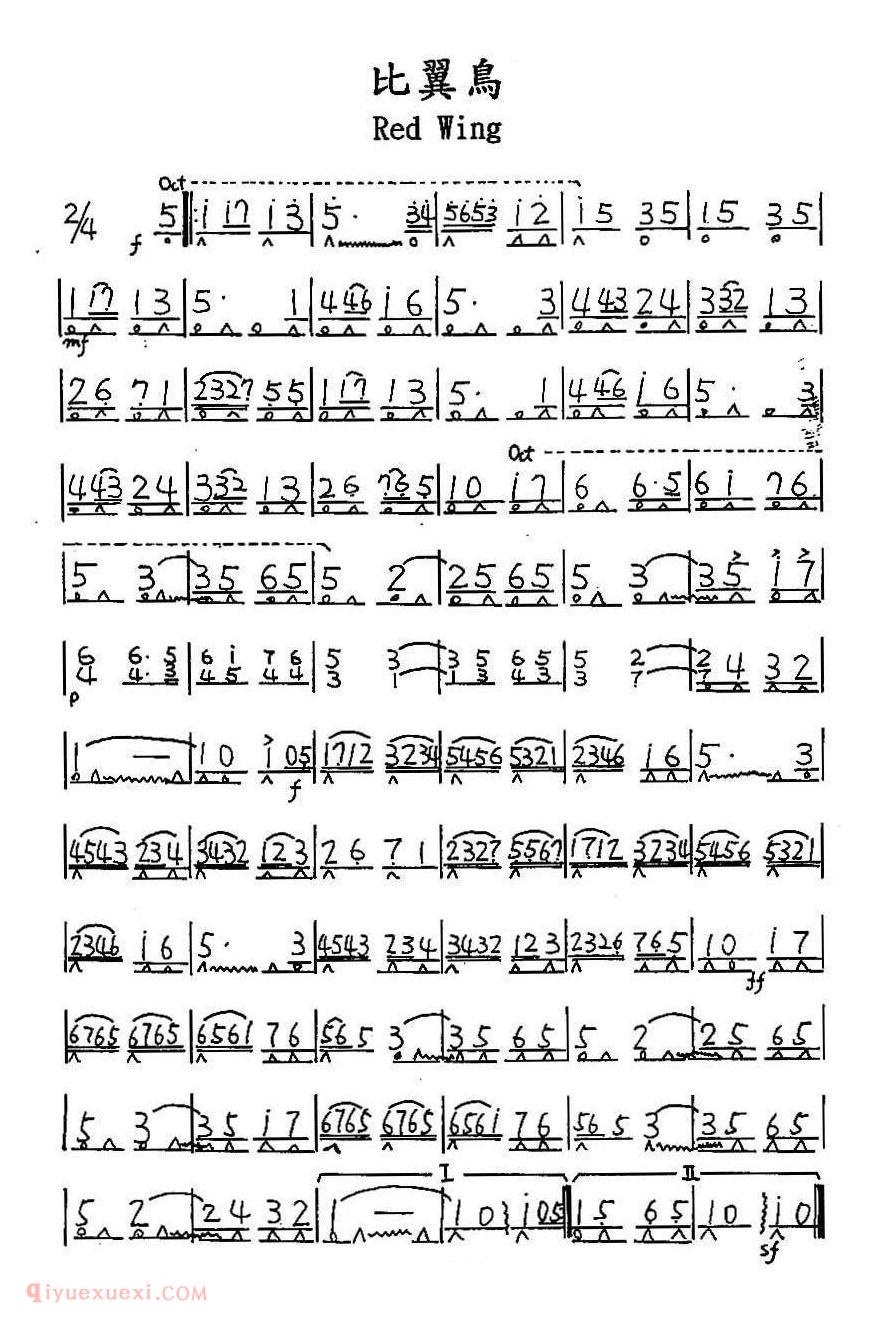 比翼鳥
Red Wing
Oct
2/4 f 5 |: 1 17 1 3 | 5 · 34 | 5653 1 2 | 1 5 3 5 | 1 5 3 5 |
| 1 17 1 3 | 5 · 1 | 4 46 1 6 | 5 · 3 | 4 43 2 4 | 3 32 1 3 |
mf
| 2 6 7 1 | 2327 5 5 | 1 17 1 3 | 5 · 1 | 4 46 1 6 | 5 · 3 |
Oct
| 4 43 2 4 | 3 32 1 3 | 2 6 76 5 | 1 0 1 7 | 6 6 · 5 | 6 1 7 6 |
| 5 3 | 3 5 6 5 | 5 2 | 2 5 6 5 | 5 3 | 3 5 1 7 |
| 6 6 · 5 | 6 1 7 6 | 5 3 | 3 5 6 5 | 5 2 | 2 4 3 2 |
4 4 · 3 | 4 5 4 4 | 3 1 | 1 3 4 3 | 3 7 | 7
p
| 1 — | 1 0 1 05 | 1712 3234 | 5456 5321 | 2346 1 6 | 5 · 3 |
f
| 4543 23 4 | 3432 12 3 | 2 6 7 1 | 2327 5567 | 1712 3234 | 5456 5321 |
| 2346 1 6 | 5 · 3 | 4543 23 4 | 3432 12 3 | 2326 76 5 | 1 0 1 7 |
ff
| 6765 6765 | 6561 7 6 | 56 5 3 | 3 5 6 5 | 5 2 | 2 5 6 5 |
| 5 3 | 3 5 1 7 | 6765 6765 | 6561 7 6 | 56 5 3 | 3 5 6 5 |
I II
| 5 2 | 2 4 3 2 | 1 — | 1 0 1 05 | 1 5 6 5 | 1 0 1 0 |
sf
qiyuexuexi.COM